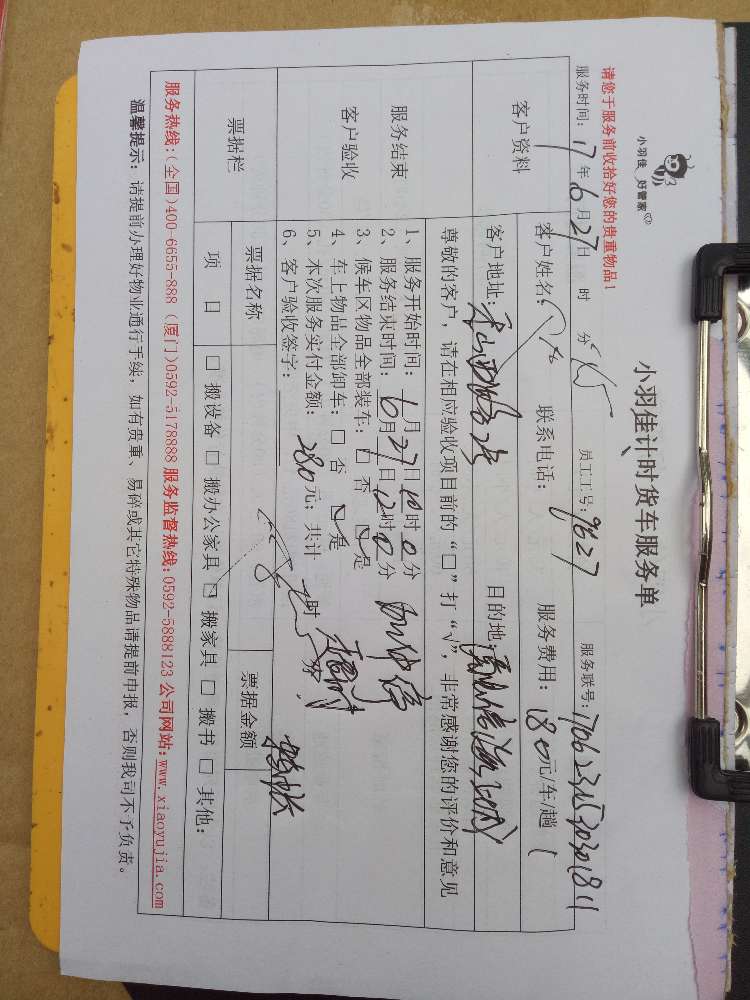 小羽佳 好管家
小羽佳计时货车服务单
请您于服务前收拾好您的贵重物品!
服务时间: 17年6月27日 时 分 员工工号: 9627 服务联号:
客户资料 客户姓名: 联系电话: 服务费用: 180元/车/趟 (
客户地址: 目的地:
尊敬的客户, 请在相应验收项目前的“□”打“√”, 非常感谢您的评价和意见
服务结束
客户验收
1、服务开始时间: 6月27日10时0分
2、服务结束时间: 6月27日12时0分
3、候车区物品全部装车: □ 否 ☑ 是
4、车上物品全部卸车: □ 否 ☑ 是
5、本次服务实付金额: 280元; 共计 时 分,
6、客户验收签字:
票据栏 票据名称 票据金额
项 目 □ 搬设备 □ 搬办公家具 ☑ 搬家具 □ 搬书 □ 其他:
服务热线:(全国)400-6655-888 (厦门)0592-5178888 服务监督热线:0592-5888123 公司网站:www.xiaoyujia.com
温馨提示: 请提前办理好物业通行手续, 如有贵重、易碎或其它特殊物品请提前申报, 否则我司不予负责。